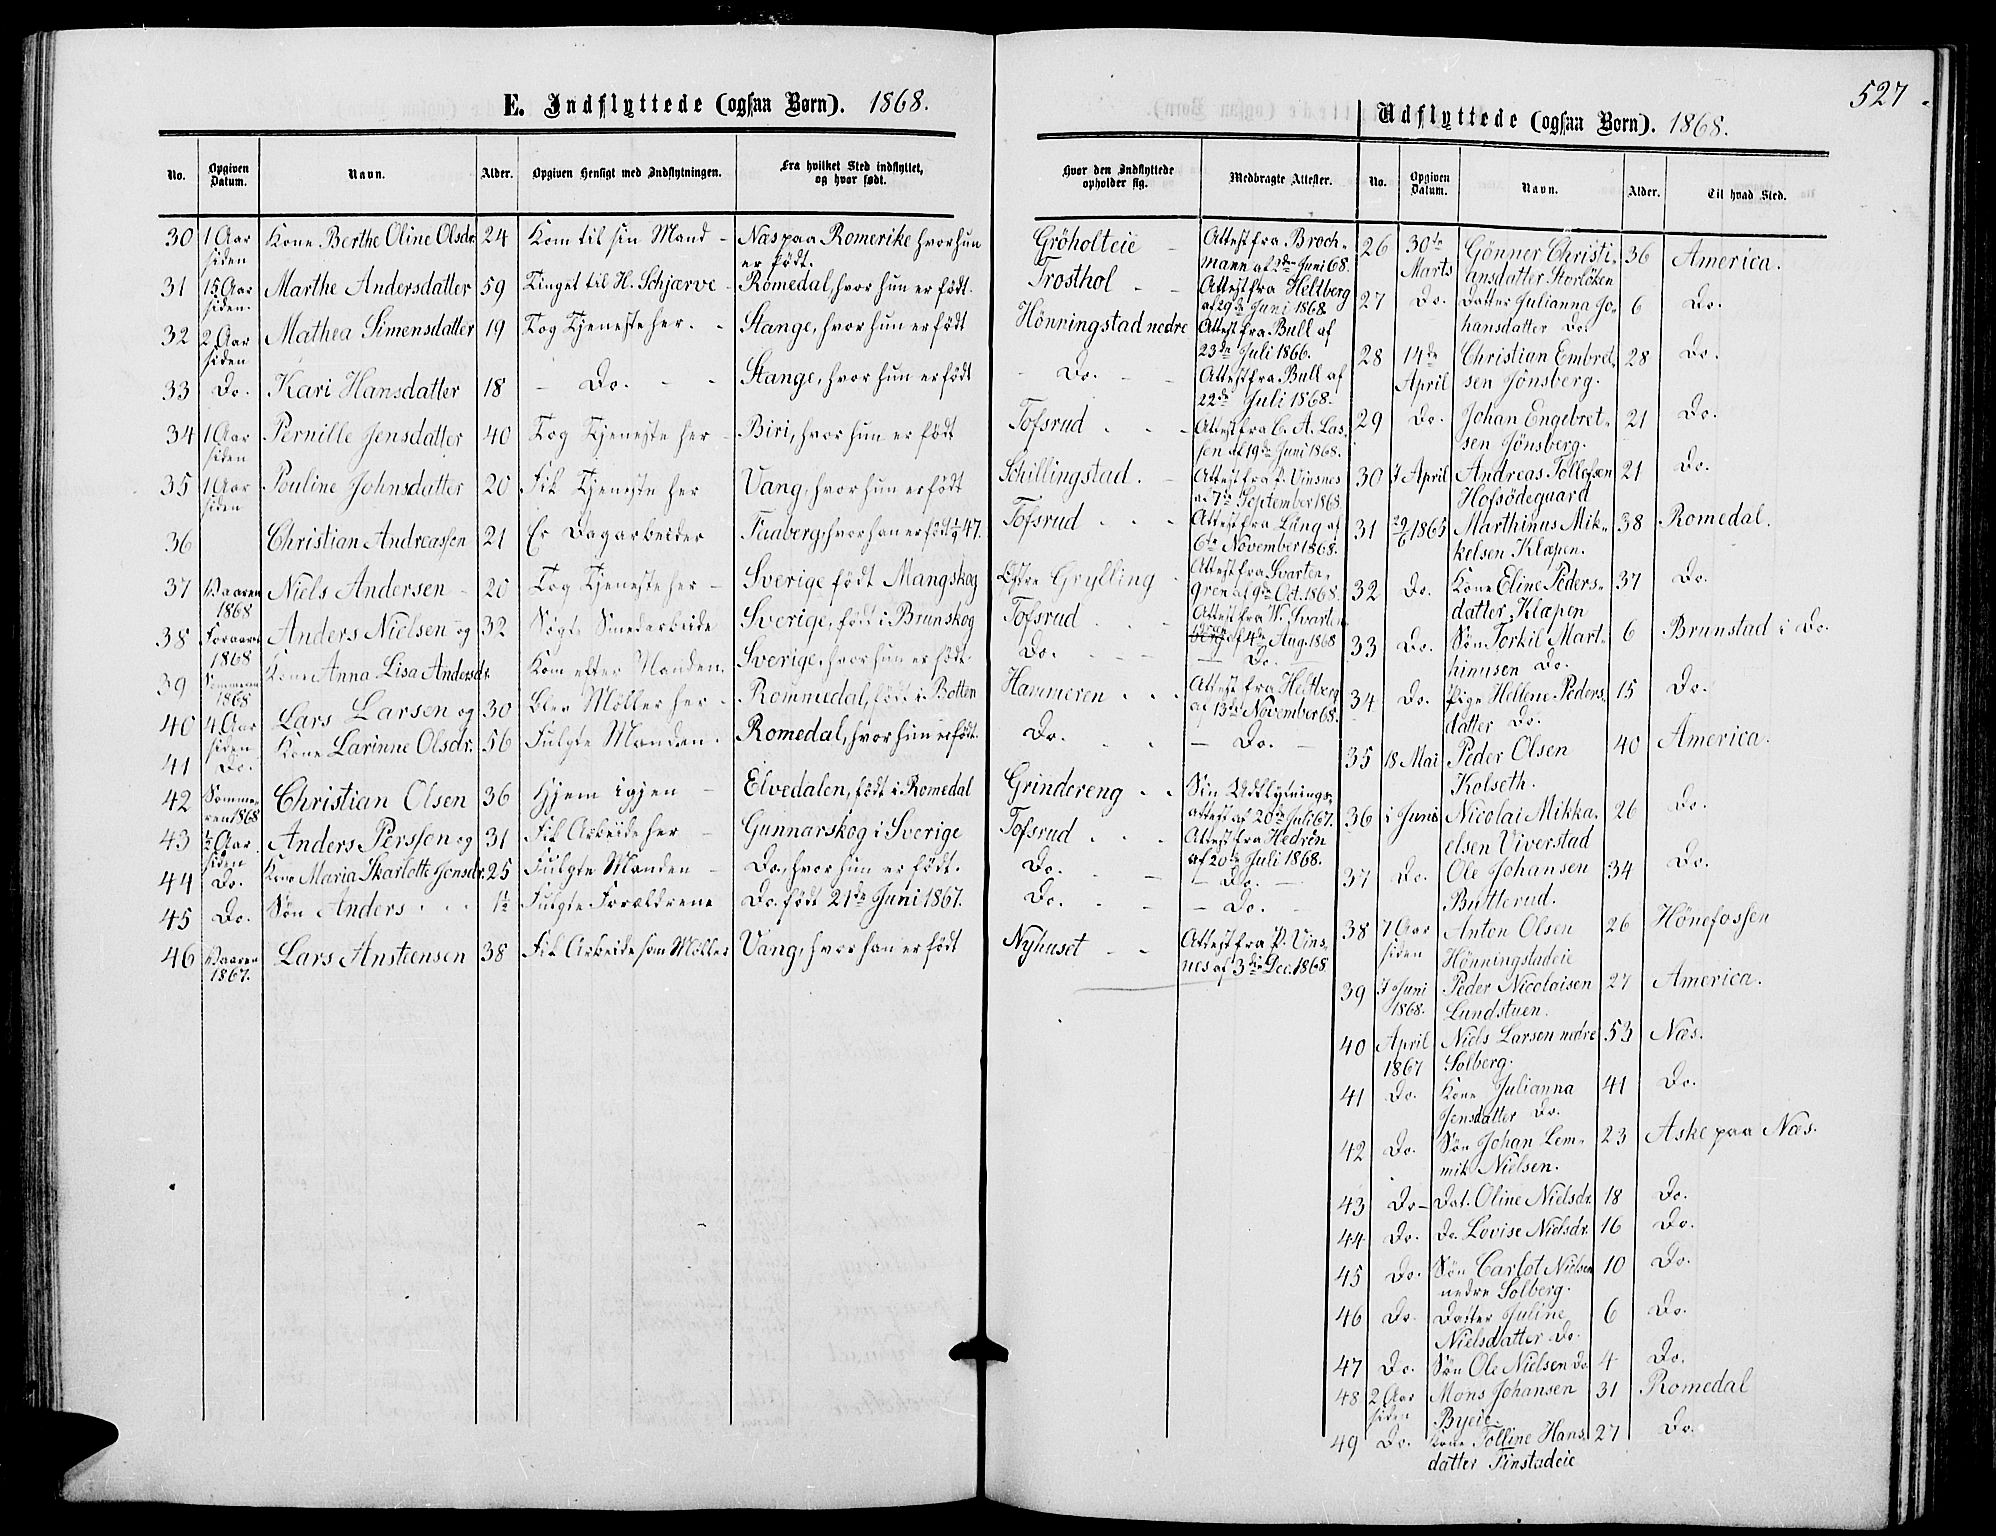 527.
E. Indflyttede (ogsaa Børn). 1868.
No. Opgiven Datum. Navn. Alder. Opgiven Hensigt med Indflytningen. Fra hvilket Sted indflyttet, og hvor født. Hvor den Indflyttede opholder sig. Medbragte Attester.
30 1 Aar siden Kone Berthe Oline Olsdr. 24 Kom til sin Mand - Næs paa Romerike hvor hun er født. Gröholteie - Attest fra Brochmann af 2den Juni 68.
31 15 Aar siden. Marthe Andersdatter 59 Tinget til H. Schjærve - Romedal, hvor hun er født. Frosthol - - Attest fra Heltberg af 29de Juni 1868.
32 2 Aar siden Mathea Simensdatter 19 Tog Tjeneste her. - Stange, hvor hun er født Hönningstad nedre Attest fra Bull af 23de Juli 1866.
33 Do. Kari Hansdatter 18 - Do. - - Stange, hvor hun er født - Do. - - Attest fra Bull af 22de Juli 1868.
34 1 Aar siden Pernille Jensdatter 40 Tog Tjeneste her - Biri, hvor hun er født Tofsrud - - - Attest fra C. A. Lassen af 19de Juni 1868.
35 1 Aar siden Pouline Johnsdatter 20 Fik Tjeneste her Vang, hvor hun er født Schillingstad. - Attest fra P. Vinsnes af 7de September 1868.
36 Christian Andreassen 21 Er Dagarbeider Faaberg, hvor han er født 47. Tofsrud - - - Attest fra Ling af 6te November 1868.
37 Vaaren 1868 Niels Andersen - 20 Tog Tjeneste her - Sverige født Mangskog Östre Grylling - Attest fra Svartengren af 9de Oct. 1868.
38 Foraaret 1868 Anders Nielsen og 32 Søgte Smedarbeide Sverige, født i Brunskog Tofsrud - - - Attest fra W. Svartengren af 4de Aug. 1868
39 Sommeren 1868 Kone Anna Lisa Andersdr. Kom efter Manden. Sverige, hvor hun er født. Do. - - - - Do. -
40 4 Aar siden Lars Larsen og 30 Blev Möller her - Rommedal, født i Botten Hammeren - - - Attest fra Heltberg af 13de November 68.
41 Do. Kone Larinne Olsdr. 56 Fulgte Manden. Romedal, hvor hun er født. Do. - - - - Do. -
42 Sommeren 1868 Christian Olsen 36 Hjem igjen - Elvedalen, født i Romedal Grindereng - - Sin Udflytningsattest af 20de Juli 67.
43 ½ Aar siden Anders Persson og 31 Fik Arbeide her - Gunnarskog i Sverige Tofsrud - - Attest fra Hedrén af 20de Juli 1868.
44 Do. Kone Maria Skarlotte Jonsdr. 25 Fulgte Manden - Do. hvor hun er født. Do. - - - - Do. -
45 Do. Søn Anders - - - 1½ Fulgte Forældrene Do. født 21de Juni 1867. Do. - - - - Do. -
46 Vaaren 1867. Lars Ansteensen 38 Fik Arbeide som Möller Vang, hvor han er født Nyhuset - - Attest fra P. Vinsnes af 3die Dec. 1868.
Udflyttede (ogsaa Børn). 1868.
No. Opgiven Datum. Navn. Alder. Til hvad Sted.
26 30te Marts Gönner Christiansdatter Storlöken 36 America.
27 Do. Datter Julianna Johansdatter Do. 6 Do.
28 14de April Christian Embretsen Jönsberg. 28 Do.
29 Do. Johan Engebretsen Jönsberg. 21 Do.
30 7 April Andreas Tollefsen Hofsödegaard 21 Do.
31 1865 Marthinus Mikkelsen Klæpen. 38 Romedal.
32 Do. Kone Eline Pedersdatter Klæpen 37 Do.
33 Do. Søn Torkil Marthinusen Do. 6 Brunstad i Do.
34 Do. Pige Hellene Pedersdatter Do. 15 Do.
35 18 Mai Peder Olsen Kolseth. 40 America.
36 i Juni Nicolai Mikkaelsen Viverstad 26 Do.
37 Do. Ole Johansen Butterud. 34 Do.
38 7 Aar siden Anton Olsen Hönningstadeie 26 Hönefossen
39 7 Juni 1868. Peder Nicolaisen Lundstuen. 27 America.
40 April 1867 Niels Larsen nedre Solberg. 53 Næs.
41 Do. Kone Julianna Jensdatter Do. 41 Do.
42 Do. Søn Johan Lemmik Nielsen. 23 Aske paa Næs.
43 Do - Dat. Oline Nielsdr. 18 Do.
44 Do. Do. Lovise Nielsdr. 16 Do.
45 Do. Søn Carlot Nielsen nedre Solberg. 10 Do.
46 Do. Datter Juline Nielsdatter Do. 6 Do.
47 Do. Søn Ole Nielsen Do. 4 Do.
48 2 Aar siden Mons Johansen Byeie. 31 Romedal
49 Do. Kone Tolline Hansdatter Finstadeie 27 Do.